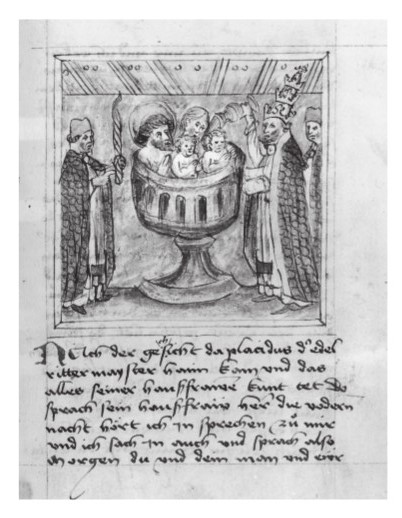 Nach der gesicht da placidus d' edel
ritter mayster haim kam vnd das
alles seiner hausfrawe kunt tet do
sprach sein hausfraw her die vodern
nacht hört ich In sprechen zů mir
vnd ich sach In auch vnd sprach also
morgen du vnd dein man vnd